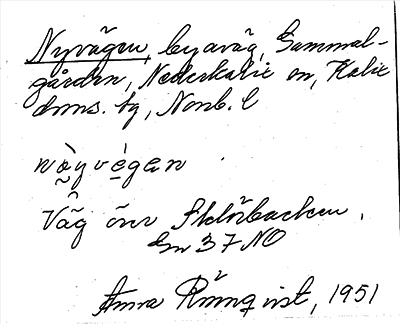 Nyvägen, byaväg, Gammal-
gården, Nederkalix sn, Kalix
doms. tg, Norrb. l
nǫ̀yvégen
Väg över Sklörbacken.
Em 37 NO
Anna Rönnqvist, 1951